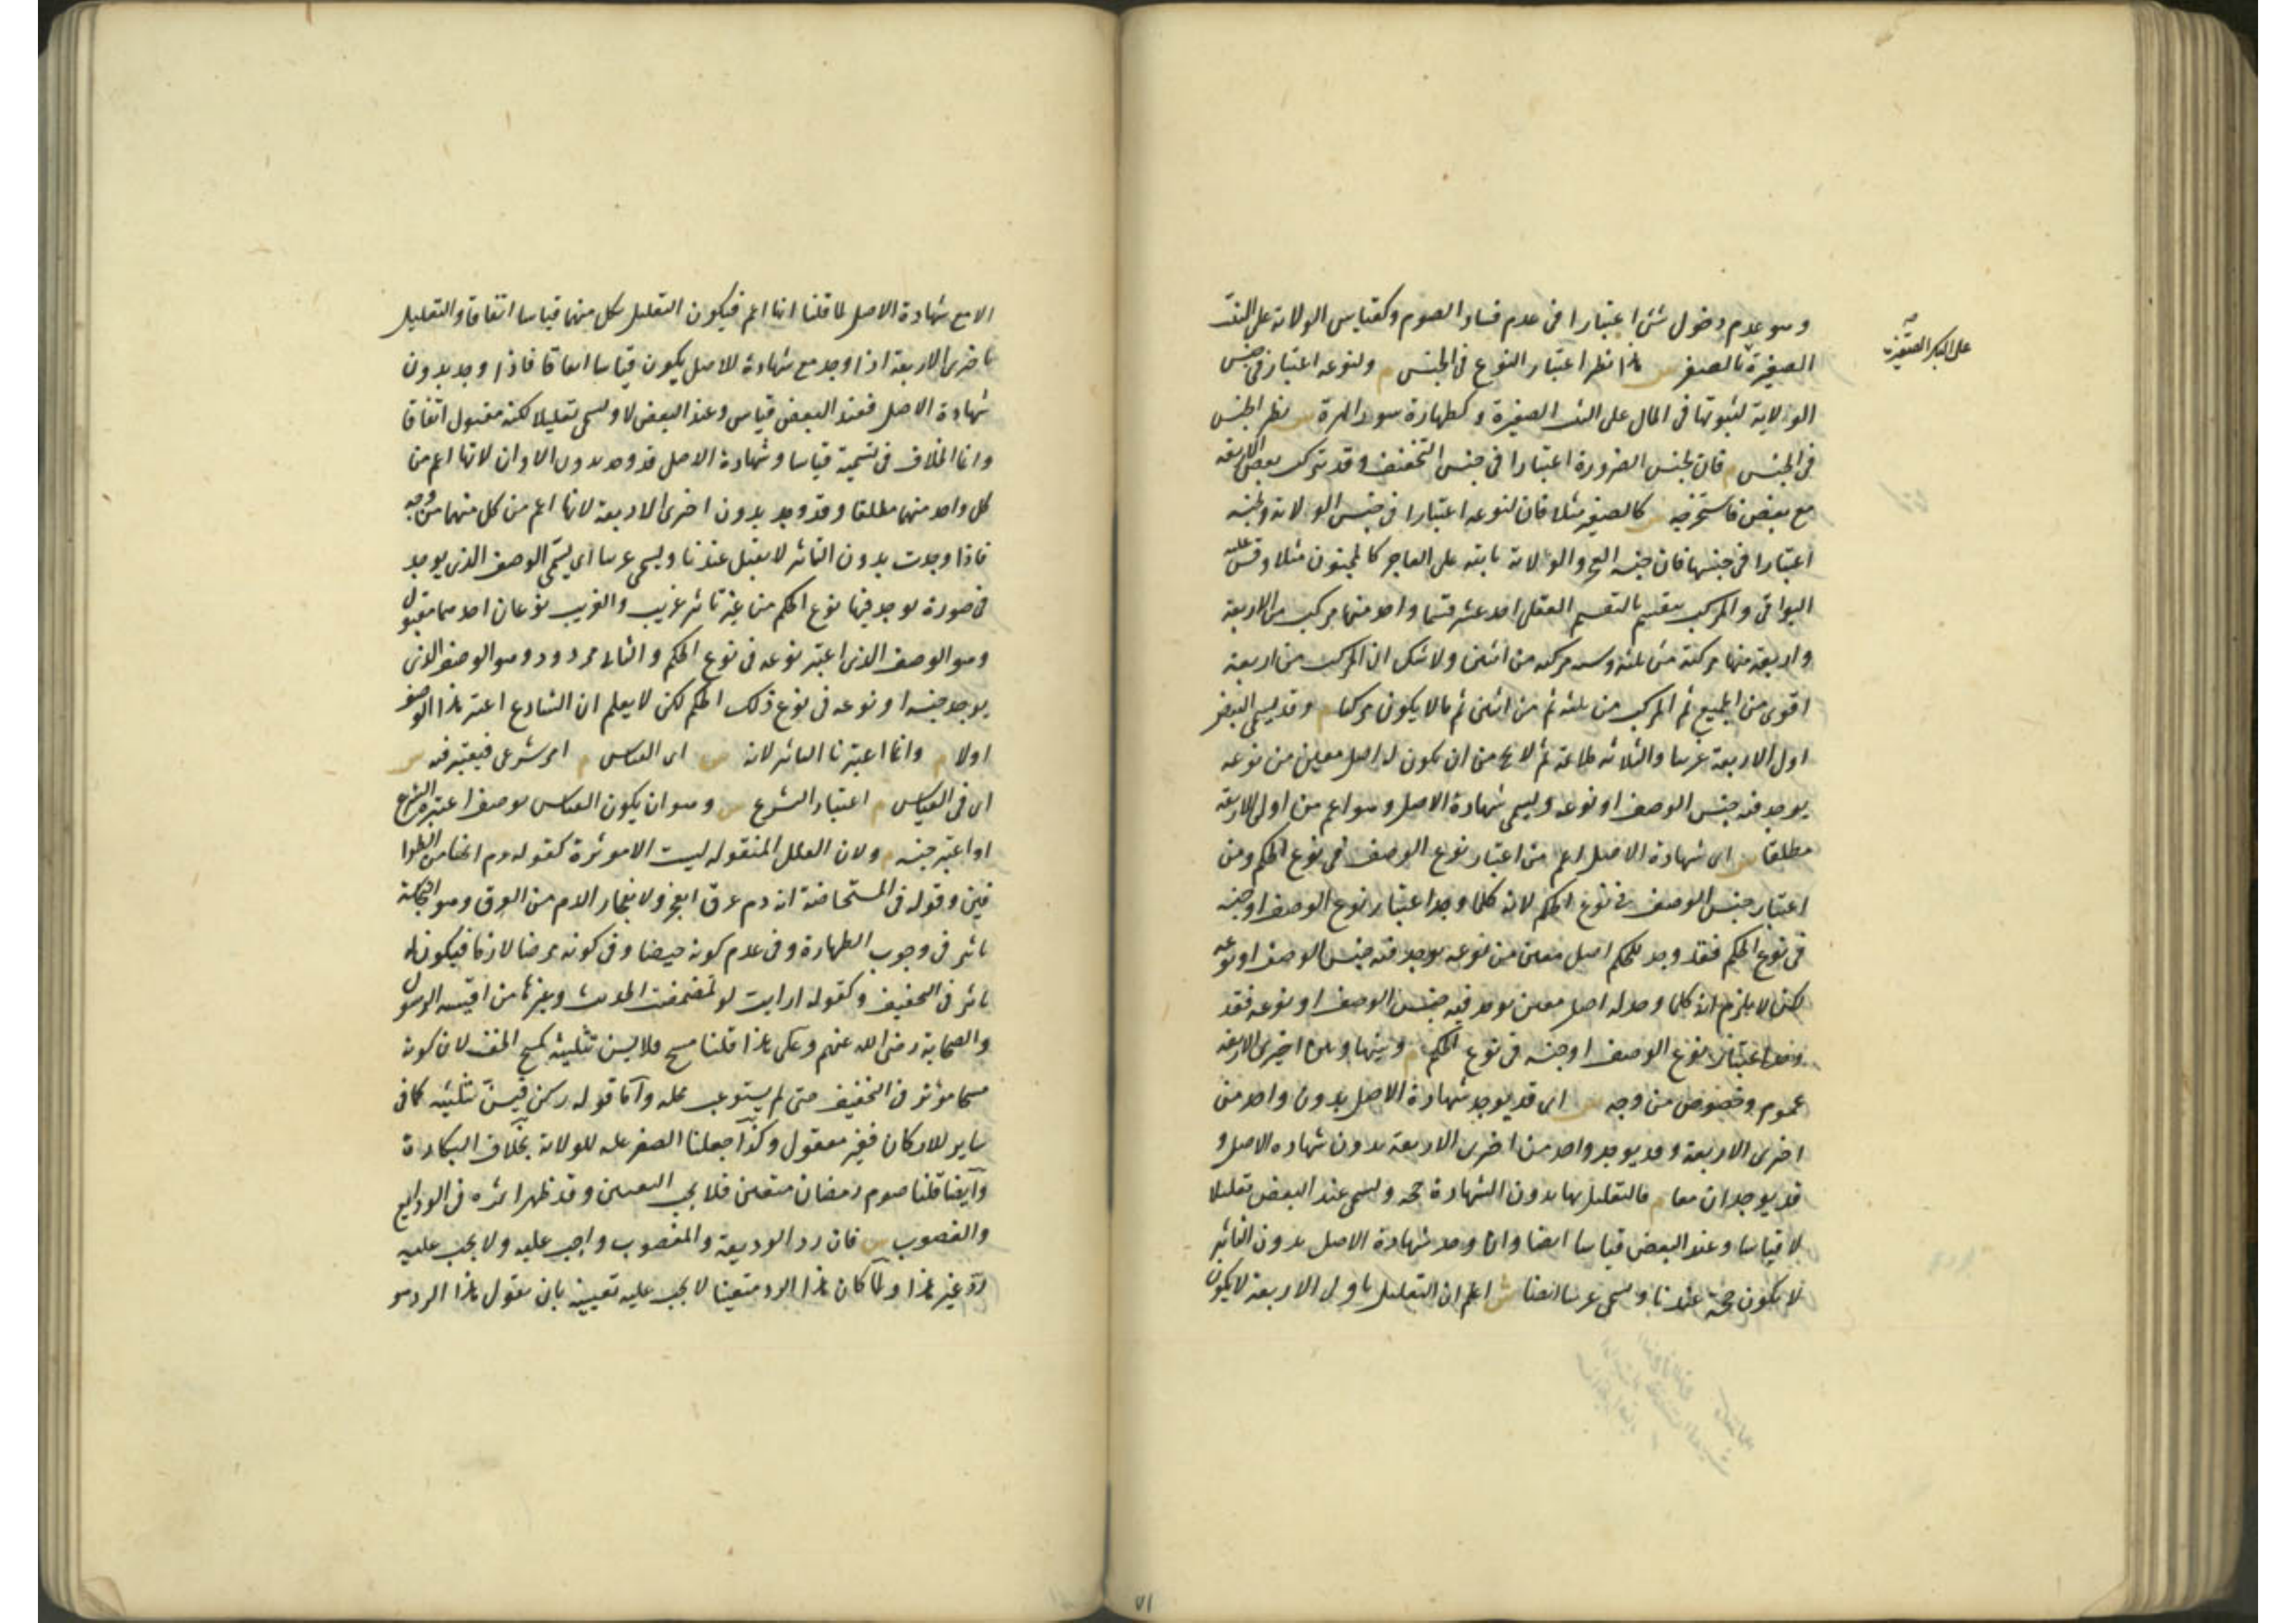 وهو عدم دخول شئ اعتبارا فى عدم فساد الصوم وكقياس الولاية على الثيب
على البكر الصغيرة
الصغيرة بالصغر س هذا نظير اعتبار النوع فى الجنس م ولنوعه اعتبار فى جنس
الولاية لثبوتها فى المال على الثيب الصغيرة وكطهارة سور الهرة س نظير الجنس
فى الجنس م فان لجنس الضرورة اعتبارا فى جنس التخفيف وقد تركب بعض الاربعة
مع بعض فاستخرجه س كالصغير مثلا فان لنوعه اعتبارا فى جنس الولاية ولجنسه
اعتبارا فى جنسها فان جنسه العجز والولاية ثابتة على العاجز كالمجنون مثلا وقس عليه
البواقى والمركب ينقسم بالتقسيم العقلى احد عشر قسما واحد منها مركب من الاربعة
واربعة منها مركبة من ثلثة وستة مركبة من اثنين ولا شك ان المركب من اربعة
اقوى من الجميع ثم المركب من ثلثة ثم من اثنين ثم ما لا يكون مركبا م وقد يسمى البعض
اول الاربعة غريبا والثلاثة ملائمة ثم لا يخ من ان يكون له اصل معين من نوعه
يوجد فيه جنس الوصف او نوعه ويسمى شهادة الاصل وهو اعم من اولى الاربعة
مطلقا س اى شهادة الاصل اعم من اعتبار نوع الوصف فى نوع الحكم ومن
اعتبار جنس الوصف فى نوع الحكم لانه كلما وجد اعتبار نوع الوصف او جنسه
فى نوع الحكم فقد وجد للحكم اصل معين من نوعه يوجد فيه جنس الوصف او نوعه
لكن لا يلزم انه كلما وجد له اصل معين يوجد فيه جنس الوصف او نوعه فقد
وجد اعتبار نوع الوصف او جنسه فى نوع الحكم م وبينها وبين اخرى الاربعة
عموم وخصوص من وجه س اى قد يوجد شهادة الاصل بدون واحد من
اخرى الاربعة وقد يوجد واحد من اخرى الاربعة بدون شهادة الاصل و
قد يوجدان معا م فالتعليل بها بدون الشهادة حجة ويسمى عند البعض تعليلا
لا قياسا وعند البعض قياسا ايضا واذا وجد شهادة الاصل بدون التاثير
لا يكون حجة عندنا ويسمى غريبا ايضا ش اعلم ان التعليل باولى الاربعة لا يكون
الا مع شهادة الاصل لما قلنا انها اعم فيكون التعليل بكل منهما قياسا اتفاقا والتعليل
باخرى الاربعة اذا وجد مع شهادة الاصل يكون قياسا اتفاقا فاذا وجد بدون
شهادة الاصل فعند البعض قياس وعند البعض لا ويسمى تعليلا لكنه مقبول اتفاقا
وانما الخلاف فى تسمية قياسا وشهادة الاصل قد وجد بدون الاولان لانها اعم من
كل واحد منهما مطلقا وقد وجد بدون اخرى الاربعة لانها اعم من كل منهما من وجه
فاذا وجدت بدون التاثير لا يقبل عندنا ويسمى غريبا اى يسمى الوصف الذى يوجد
فى صورة يوجد فيها نوع الحكم من غير تاثير غريب والغريب نوعان احدهما مقبول
وهو الوصف الذى اعتبر نوعه فى نوع الحكم والثانى مردود وهو الوصف الذى
يوجد جنسه او نوعه فى نوع ذلك الحكم لكن لا يعلم ان الشارع اعتبر هذا الوصف
اولا م وانما اعتبرنا التاثير لانه س اى القياس م امر شرعى فيعتبر فيه س
اى فى القياس م اعتبار الشرع س وهو ان يكون القياس بوصف اعتبره الشرع
او اعتبر جنسه م ولان العلل المنقولة ليست الا مؤثرة كقوله دم انها من الطوا
فين وقوله فى المستحاضة انه دم عرق انفجر ولانفجار الدم من العرق وهو النجاسة
تاثير فى وجوب الطهارة وفى عدم كونه حيضا وفى كونه مرضا لازما فيكون له
تاثير فى التخفيف وكقوله ارايت لو تمضمضت الحديث وغيرها من اقيسة الرسول
والصحابة رضى الله عنهم وعلى هذا قلنا مسح فلا يسن تثليثه كمسح الخف لان كونه
مسحا مؤثر فى التخفيف حتى لم يستوعب محله واما قوله ركن فيسن تثليثه كما فى
ساير للاركان فغير معقول وكذا جعلنا الصغر علة للولاية بخلاف البكارة
وايضا قلنا صوم رمضان متعين فلا يجب التعيين وقد ظهر اثره فى الودايع
والغصوب س فان رد الوديعة والمغصوب واجب عليه ولا يجب عليه
رد غير هذا ولما كان هذا الرد متعينا لا يجب عليه تعيينه بان يقول هذا الرد هو
٧١